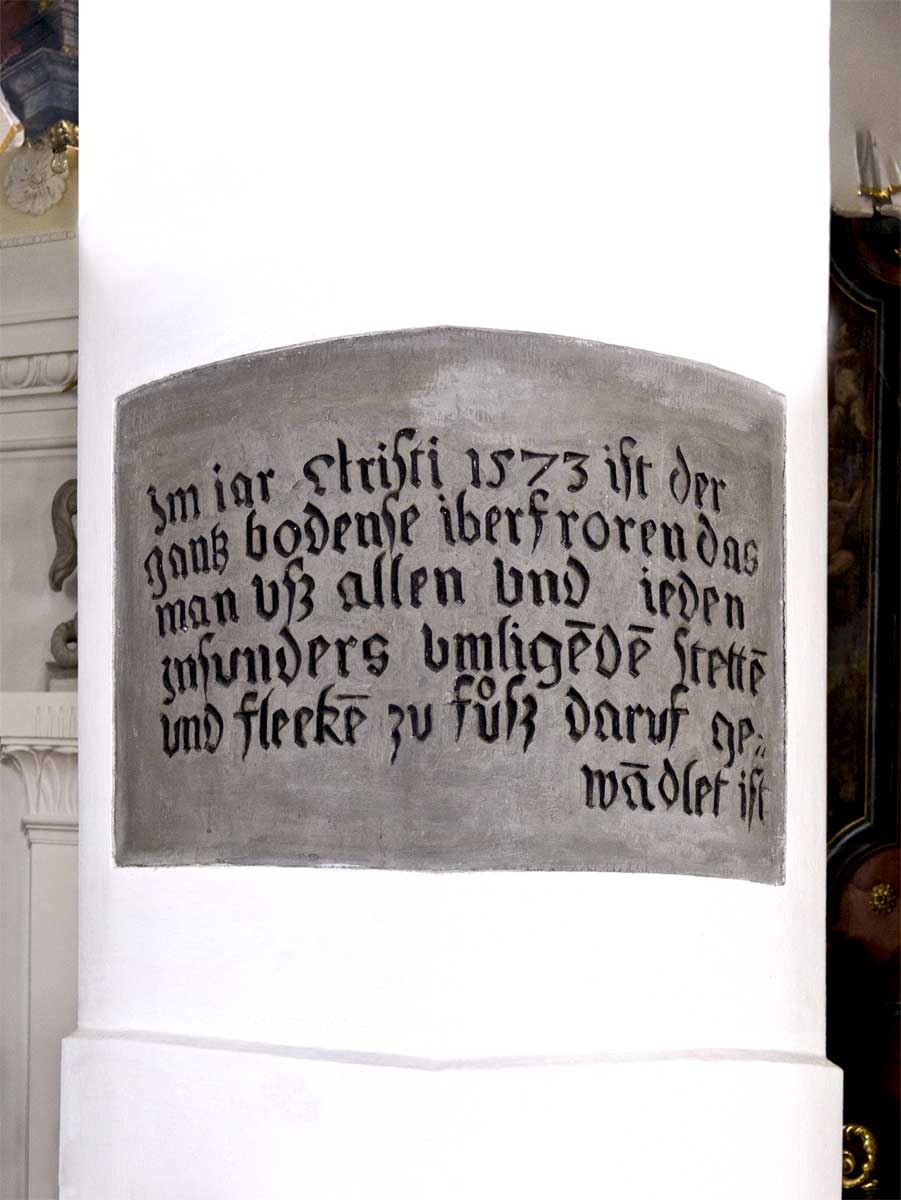 im iar christi 1573 ist der
gantz bodense iberfroren das
man vſz allen vnd ieden
insvnders vmligēdē stettē
vnd fleckē zu fůſz daruf ge⸗
wādlet ist